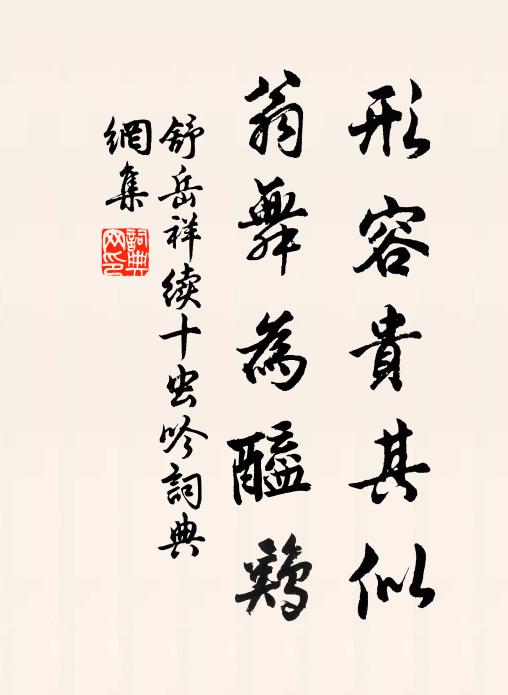 形容貴其似
翁舞為醯鷄
舒岳祥续十虫吟詞典
網集
詞典網印